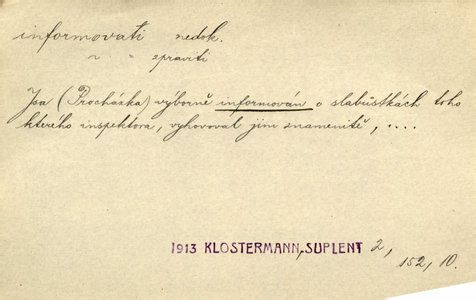 informovati nedok.
„ „ zpraviti
Jsa (Procházka) výborně informován o slabůstkách toho
kterého inspektora, vyhovoval jim znamenitě, ....
1913 KLOSTERMANN, SUPLENT 2,
152, 10.